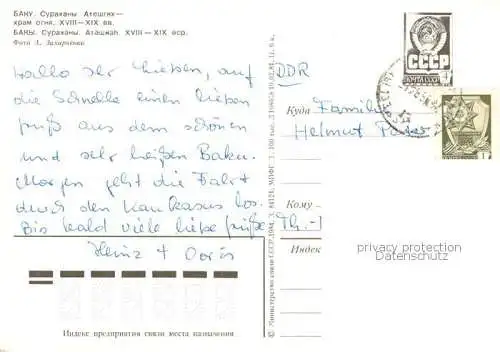 БАКУ. Сураханы Атешгях—
храм огня. XVIII—XIX вв.
БАКЫ. Сураханы. Аташкаһ. XVIII — XIX əср.
Фото А. Захарченко
Hallo Ihr Lieben, auf
die Schnelle einen lieben
Gruß aus dem schönen
und sehr heißen Baku.
Morgen geht die Fahrt
durch den Kaukasus los.
Bis bald viele liebe Grüße
Heinz + Doris
Индекс предприятия связи места назначения
© Министерство связи СССР, 1984. З. 84121. МПФГ.
СССР
ПОЧТА
DDR
Куда Familie
Helmut
Кому —
Th.
Индек
privacy protection
Datenschutz